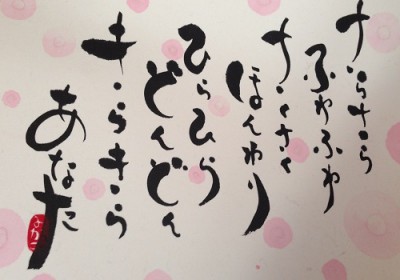 さらさら
ふわふわ
さくさく
ほんわり
ひらひら
どんどん
きらきら
あなた